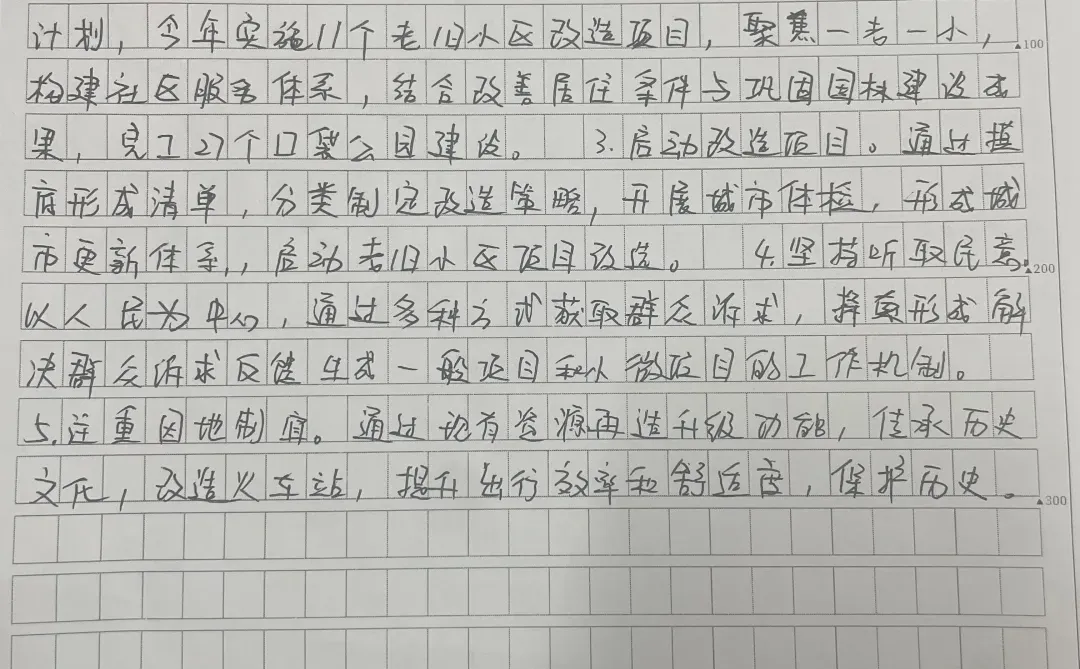 计划，今年实施11个老旧小区改造项目，聚焦一老一小，
100
构建社区服务体系，结合改善居住条件与巩固园林建设成
果，完工27个口袋公园建设。 3.启动改造项目。通过摸
底形成清单，分类制定改造策略，开展城市体检，形成城
市更新体系，，启动老旧小区项目改造。 4.坚持听取民意。
200
以人民为中心，通过多种方式获取群众诉求，择项形成解
决群众诉求反馈生成一般项目和以微项目的工作机制。
5.注重因地制宜。通过现有资源再造升级功能，传承历史
文化，改造火车站，提升出行效率和舒适度，保护历史。
300